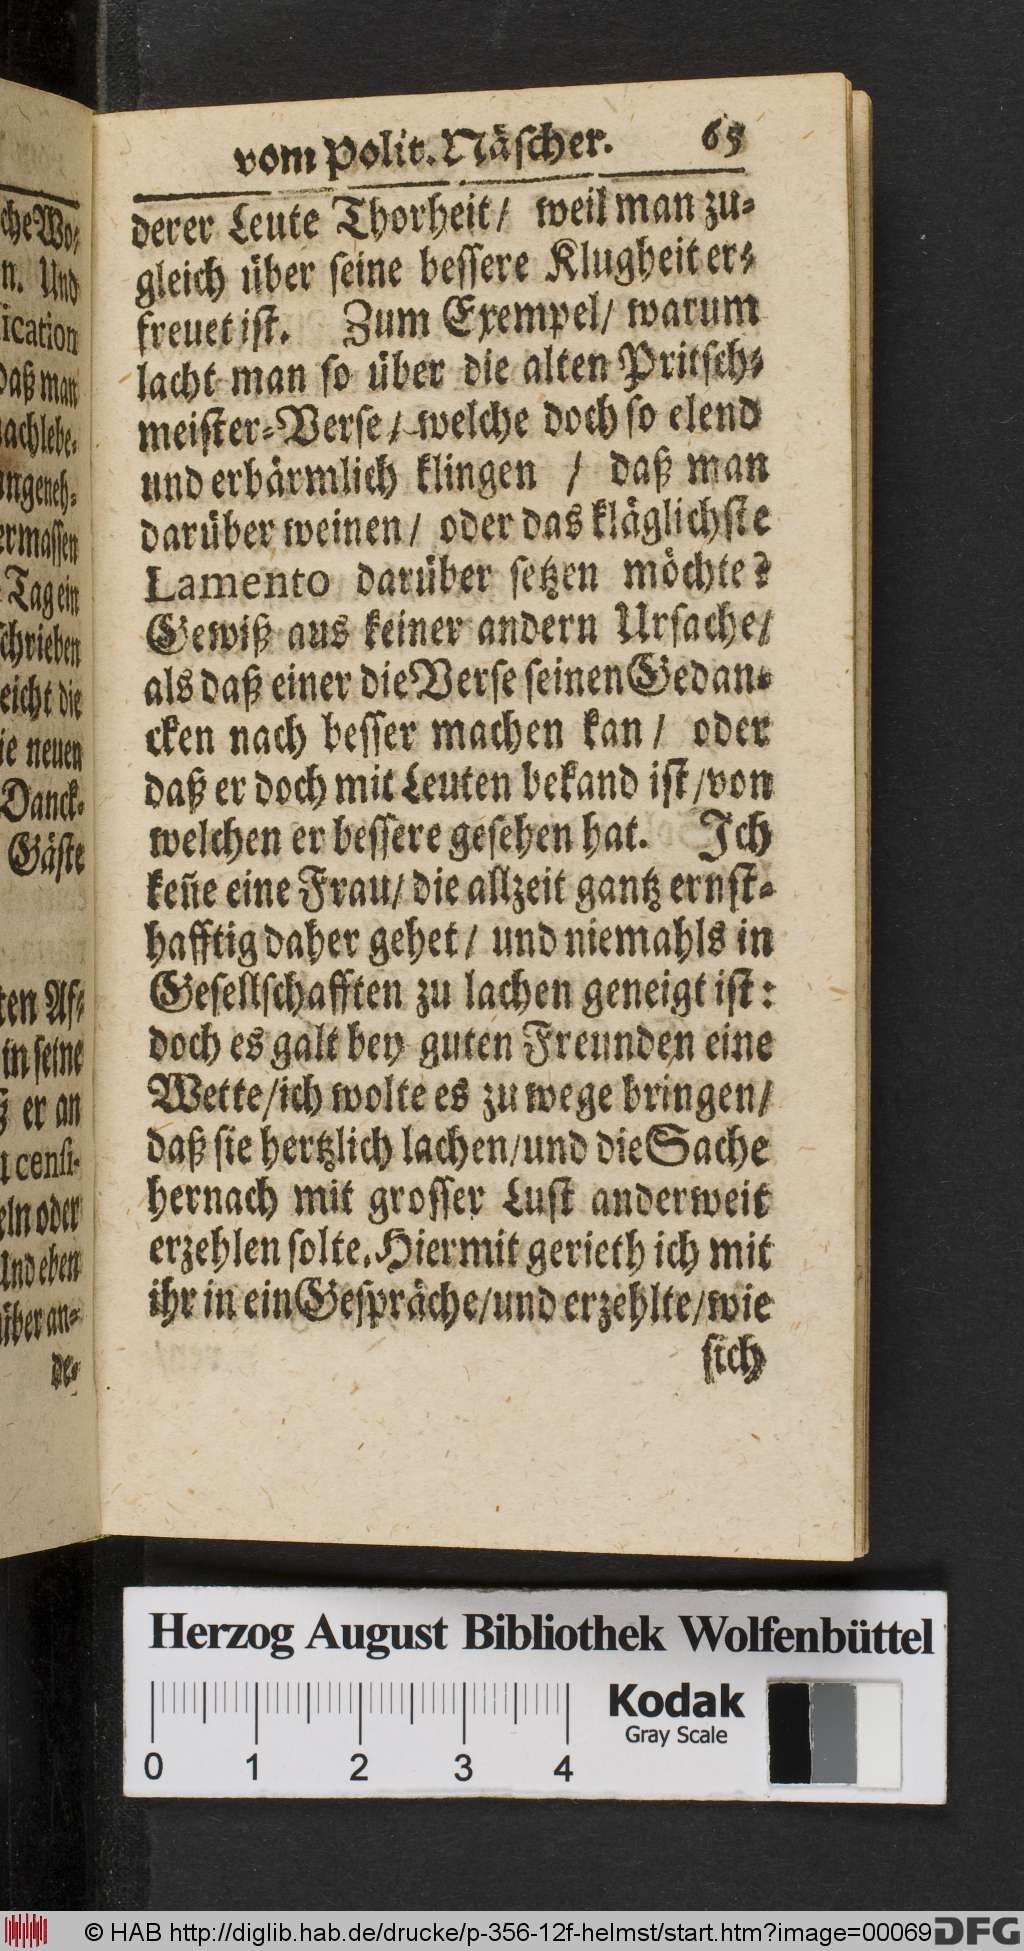 vom Polit. Näscher. 65
derer Leute Thorheit/ weil man zu-
gleich über seine bessere Klugheit er-
freuet ist. Zum Exempel/ warum
lacht man so über die alten Pritsch-
meister-Verse/ welche doch so elend
und erbärmlich klingen / daß man
darüber weinen/ oder das kläglichste
Lamento darüber setzen möchte?
Gewiß aus keiner andern Ursache/
als daß einer die Verse seinen Gedan-
cken nach besser machen kan/ oder
daß er doch mit Leuten bekand ist/ von
welchen er bessere gesehen hat. Ich
keñe eine Frau/ die allzeit gantz ernst-
hafftig daher gehet/ und niemahls in
Gesellschafften zu lachen geneigt ist:
doch es galt bey guten Freunden eine
Wette/ ich wolte es zu wege bringen/
daß sie hertzlich lachen/ und die Sache
hernach mit grosser Lust anderweit
erzehlen solte. Hiermit gerieth ich mit
ihr in ein Gespräche/ und erzehlte/ wie
sich
che Wo-
n. Und
ication
daß man
nachlebe-
ngeneh-
ermassen
Tag ein
schrieben
eicht die
ie neuen
Danck-
Gäste
ten Af-
in seine
er an
censi-
eln oder
Und eben
über an-
de-
Herzog August Bibliothek Wolfenbüttel
Kodak
Gray Scale
0 1 2 3 4
© HAB http://diglib.hab.de/drucke/p-356-12f-helmst/start.htm?image=00069
DFG